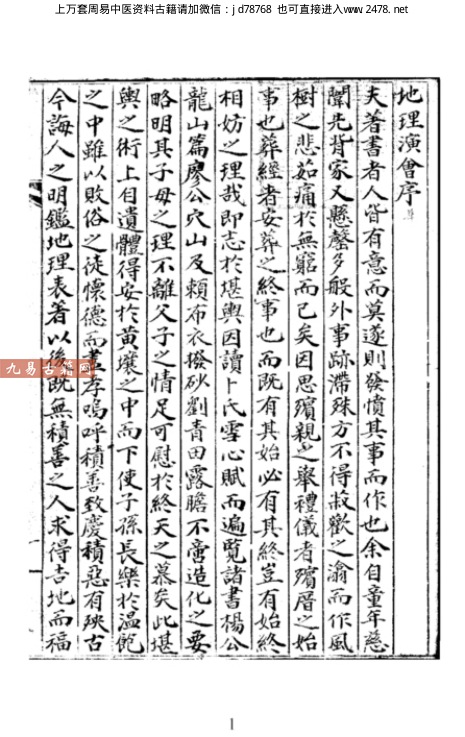 上万套周易中医资料古籍请加微信：jd78768 也可直接进入www.2478.net
地理演會序
夫著書者人皆有意而莫遂則發憤其事而作也余自童年慈
聞先背家又懸罄多般外事跡滯殊方不得菽歡之瀹而作風
樹之悲茹痛於無窮而已矣因思殯親之舉禮儀者殯厝之始
事也葬經者安葬之終事也而既有其始必有其終豈有始終
相妨之理哉即志於堪輿因讀卜氏雪心賦而遍覧諸書楊公
龍山篇廖公穴山及賴布衣撥砂劉青田露膽不啻造化之要
略明其子母之理不離父子之情足可慰於終天之慕矣此堪
輿之術上自遺體得安於黄壤之中而下使子孫長樂於温飽
之中雖以敗俗之徒懷德而盡孝嗚呼積善致慶積惡有殃古
今誨人之明鑑地理表著以後既無積善之人求得吉地而福
九易古籍网
1